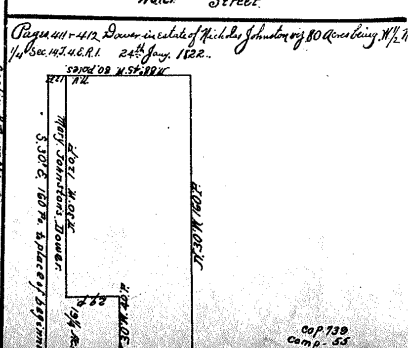 Water Street
Pages 411-412 Dower in estate of Nicholas Johnston viz 80 Acres being W.1/2 N
1/4 Sec. 14. T. 4. E. R. 1. 24th Jany. 1822.
N 88° 45 W. 80 poles
Mary Johnstons Dower
S. 30' E. 160 Po. to place of beginning
N 30 W. 120 P.
N 30 W. 160 P.
29 P
19 1/4 Ac.
N. 30 W. 40 P.
COP. 739
Comp. 55